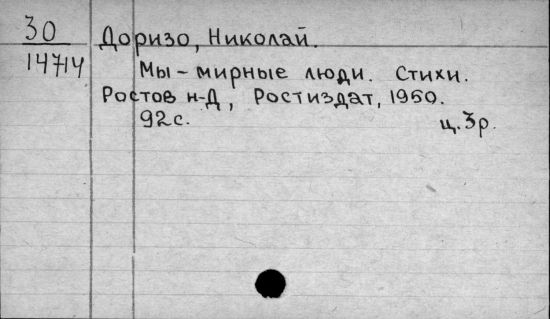 30
14714
Доризо, Николай.
Мы - мирные люди. Стихи.
Ростов н-Д, Ростиздат, 1950.
92с. ц. 3р.